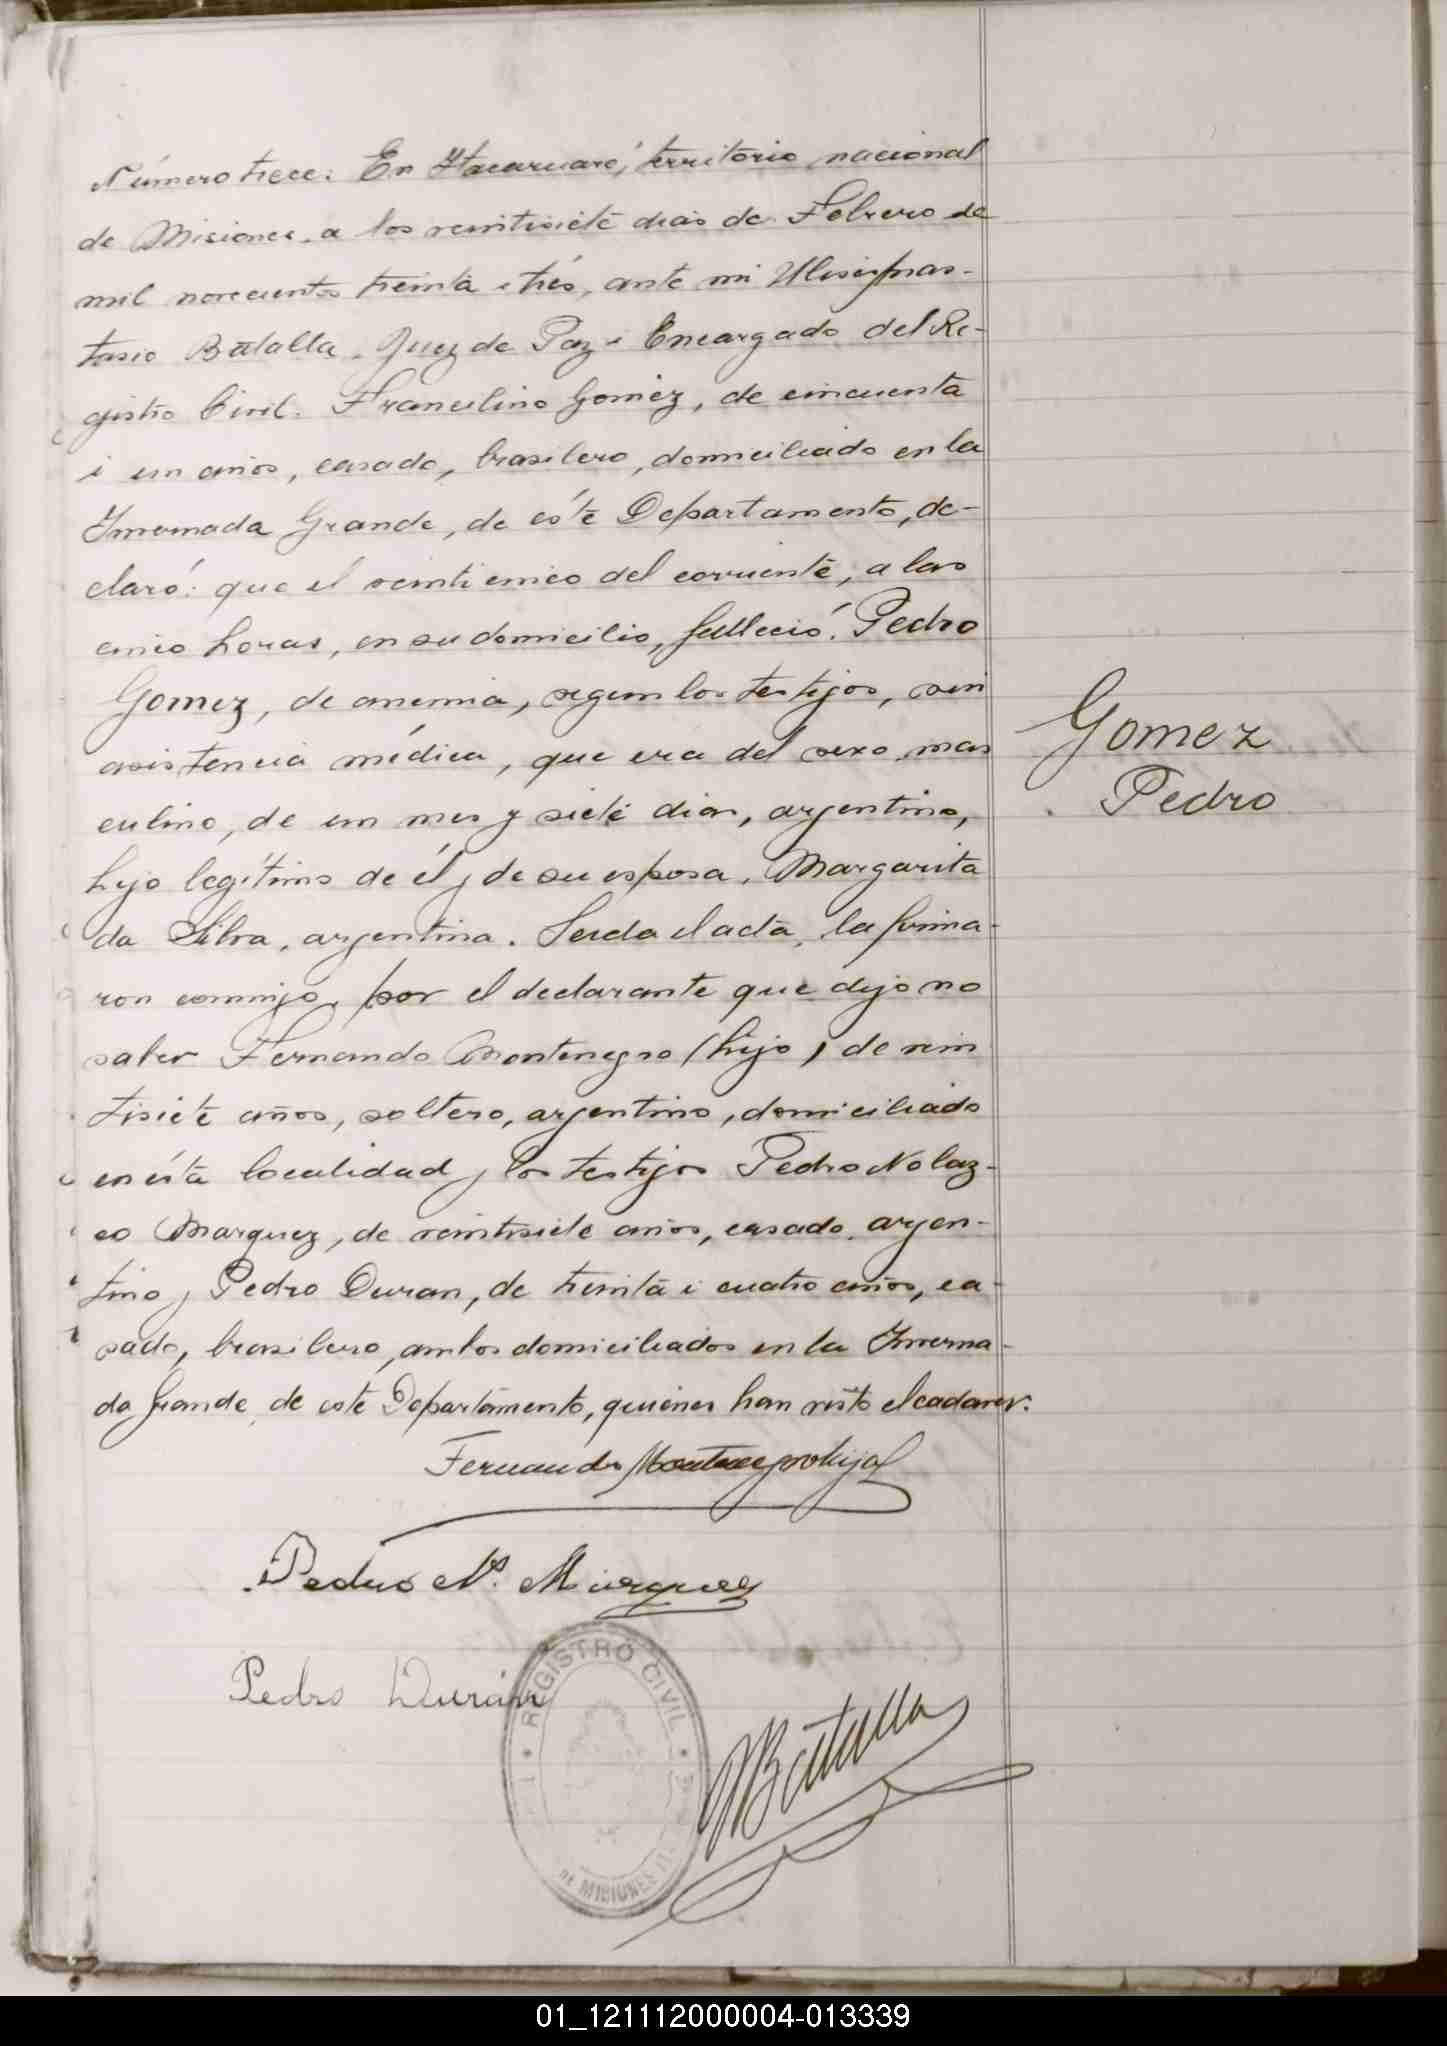 Número trece. En Itacaruaré, territorio nacional
de Misiones, a los veintisiete dias de Febrero de
mil novecientos treinta i trés, ante mi Ulises
tasio Batalla, Juez de Paz i Encargado del Re-
gistro Civil. Francelino Gomez, de cincuenta
i un años, casado, brasilero, domiciliado en la
Invernada Grande, de éste Departamento, de-
claró: que el veinticinco del corriente, a las
cinco horas, en su domicilio, falleció: Pedro
Gomez, de anemia, segun los testijos, sin
asistencia médica, que era del sexo mas
culino, de un mes y siete dias, arjentino,
hijo legítimo de él y de su esposa, Margarita
da Silva, arjentina. Leida el acta, la firma-
ron conmijo, por el declarante que dijo no
saber Fernando Montenegro (hijo) de vein
tisiete años, soltero, arjentino, domiciliado
en ésta localidad y los testijos Pedro Nolaz-
co Marquez, de veintisiete años, casado, arjen-
tino y Pedro Duran, de treinta i cuatro años, ca-
sado, brasilero, ambos domiciliados en la Inverna-
da Grande, de éste Departamento, quienes han visto el cadaver.
Gomez
Pedro
Fernando Montenegro hijo
Pedro Nº. Marquez
Pedro Durán
REGISTRO CIVIL
DE MISIONES
Batalla
01_121112000004-013339